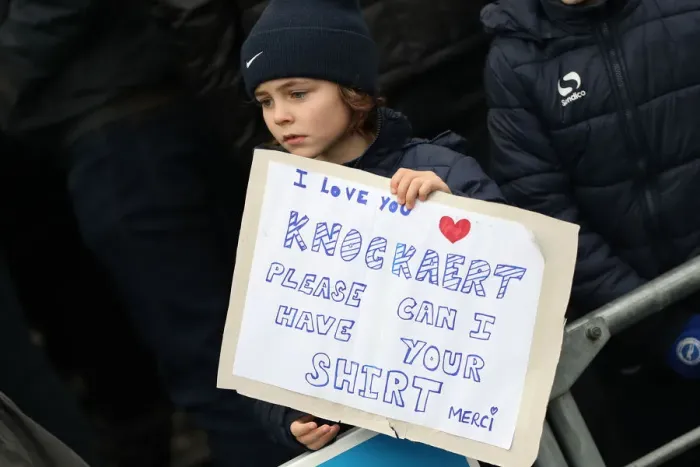 I LOVE YOU
KNOCKAERT
PLEASE CAN I
HAVE YOUR
SHIRT MERCI
Sondico